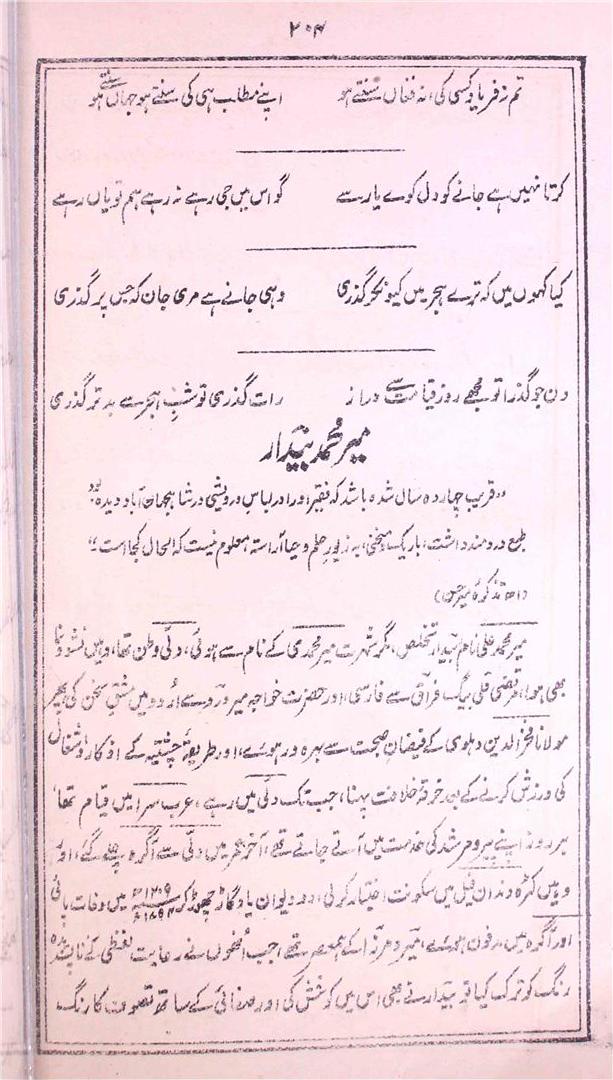 ۲۰۴
تم نہ فریاد کسی کی، نہ فغاں سنتے ہو اپنے مطلب ہی کی سنتے ہو جہاں سنتے ہو
کرتا نہیں ہے جانے کو دل کوے یار سے گو اس میں جی رہے نہ رہے ہم تو یاں رہے
کیا کہوں میں کہ ترے ہجر میں کیونکر گذری وہی جانے ہے مری جان کہ جس پر گذری
دن جو گذرا تو مجھے روز قیامت سے دراز رات گذری تو شبِ ہجر سے بدتر گذری
میر محمد بیدار
"قریب چہاردہ سال شدہ باشد کہ فقیر اورا در لباسِ درویشی در شاہجہان آباد دیدہ بود
طبع دردمند داشت، باریک و منحنی، بہ زیور حلم و حیا آراستہ معلوم نیست کہ الحال کجا است"
(از تذکرۂ میر حسن)
میر محمد علی نام بیدار تخلص، مگر شہرت میر محمدی کے نام سے ہوئی، دلّی وطن تھا، وہیں نشو و نما
بھی ہوا، مرتضیٰ قلی بیگ فراق سے فارسی، اور حضرت خواجہ میر درد سے اُردو میں مشقِ سخن کی پھر
مولانا فخر الدین دہلوی کے فیضانِ صحبت سے بہرہ ور ہوئے، اور طریقۂ چشتیہ کے اذکار و اشغال
کی ورزش کرنے کے بعد خرقۂ خلافت پہنا، جب تک دلّی میں رہے، عرب سرا میں قیام تھا،
ہر روز اپنے پیر و مرشد کی خدمت میں آتے جاتے تھے، آخر عمر میں دلّی سے آگرہ چلے گئے، اور
وہیں کٹرہ دندان فیل میں سکونت اختیار کر لی اور دیوان یادگار چھوڑ کر ۱۲۰۹ھ میں وفات پائی
اور آگرہ میں مدفون ہوئے، میر و مرزا کے ہمعصر تھے، جب اُنھوں نے رعایت لفظی کے ناپسندیدہ
رنگ کو ترک کیا تو بیدار نے بھی اس میں کوشش کی اور صفائی کے ساتھ تصوف کا رنگ